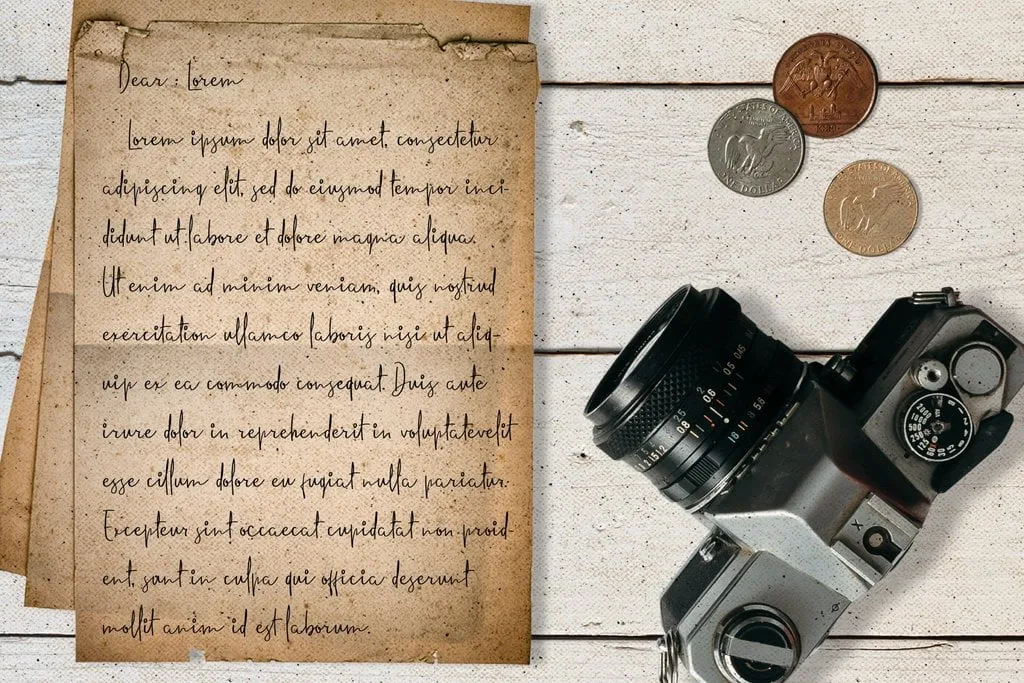 Dear : Lorem
Lorem ipsum dolor sit amet, consectetur
adipiscing elit, sed do eiusmod tempor inci-
didunt ut labore et dolore magna aliqua.
Ut enim ad minim veniam, quis nostrud
exercitation ullamco laboris nisi ut aliq-
uip ex ea commodo consequat. Duis aute
irure dolor in reprehenderit in voluptatevelit
esse cillum dolore eu fugiat nulla pariatur.
Excepteur sint occaecat cupidatat non proid-
ent, sunt in culpa qui officia deserunt
mollit anim id est laborum.
ONE DOLLAR